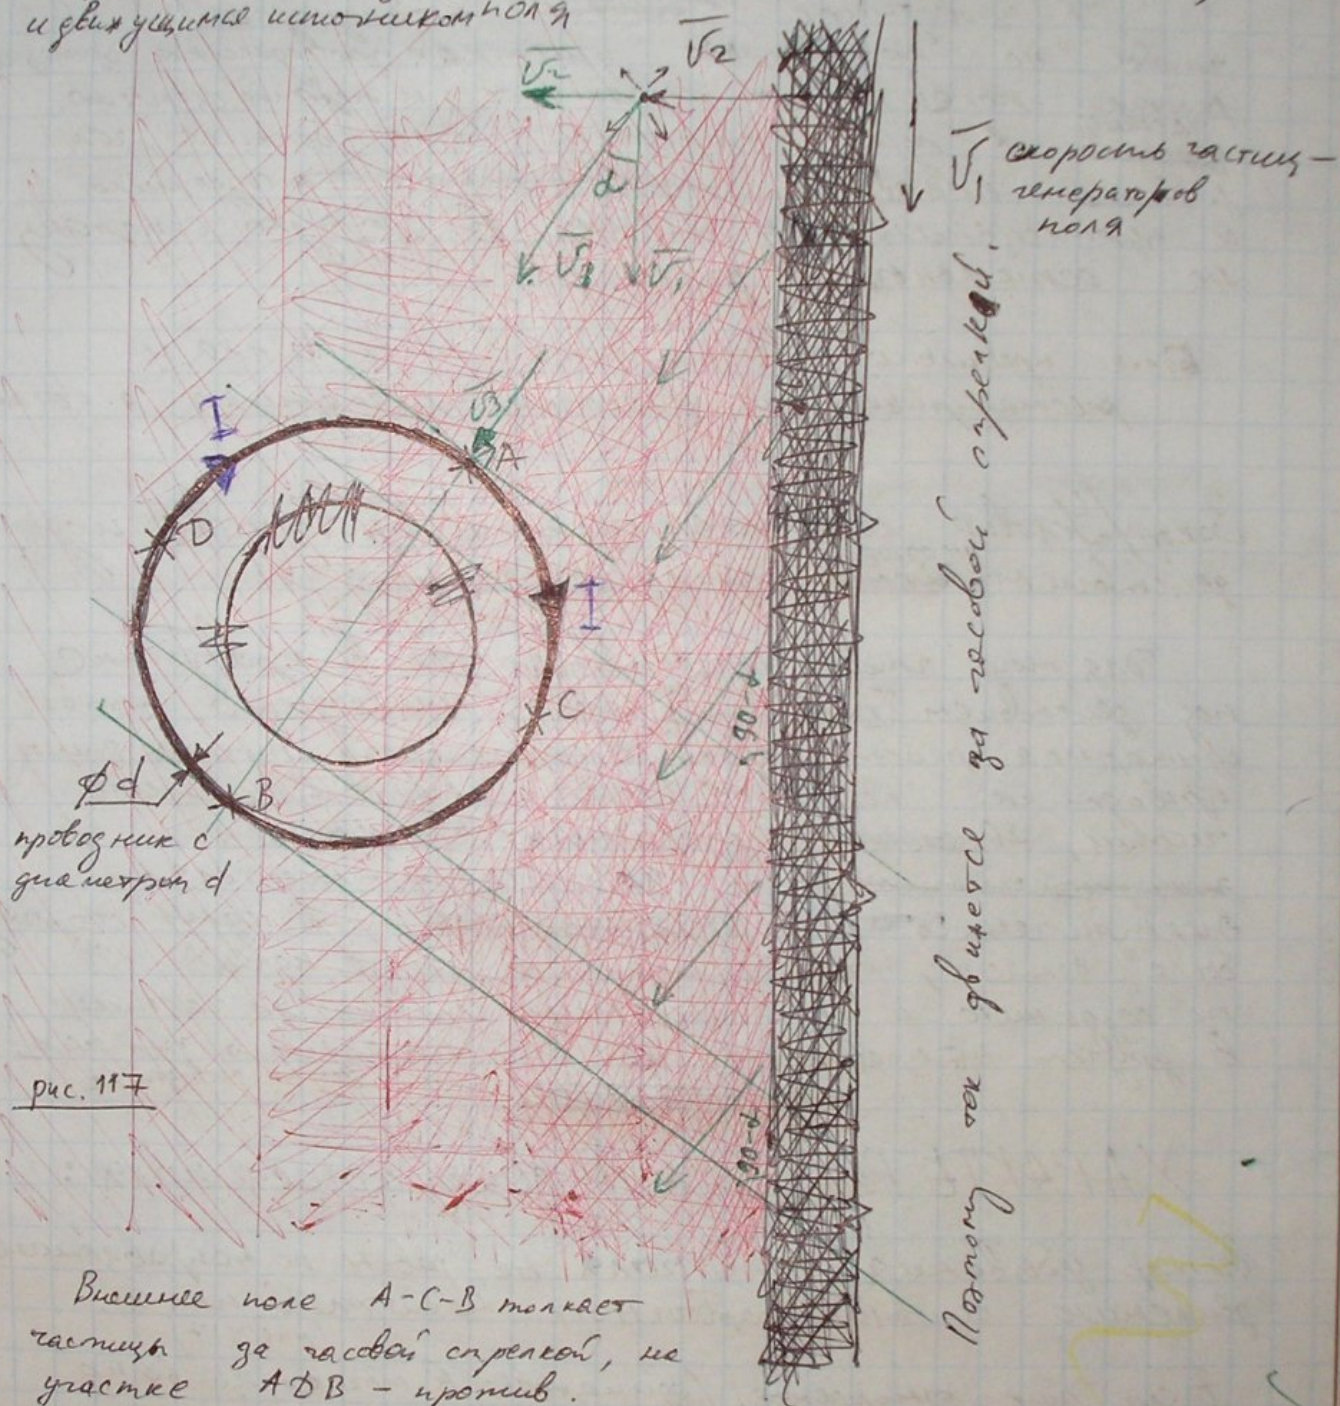 и движущимся источником поля
V₂
V₂
α
V₃
V₁
V₁ скорость частиц –
генераторов
поля
I
V₃
A
D
I
C
90-α
⌀ d
B
проводник с
диаметром d
90-α
рис. 117
Поэтому ток двинется за часовой стрелкой.
Внешнее поле А-С-В толкает
частицы за часовой стрелкой, на
участке ADB – против.